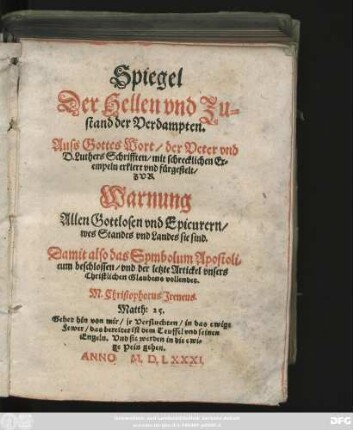 Spiegel
Der Hellen vnd Zu-
stand der Verdampten.
Auss Gottes Wort/ der Veter vnd
D. Luthers Schrifften/ mit schrecklichen Ex-
empeln erklert vnd fürgestelt/
ZVR
Warnung
Allen Gottlosen vnd Epicurern/
wes Standes vnd Landes sie sind.
Damit also das Symbolum Apostoli-
cum beschlossen/ vnd der letzte Artickel vnsers
Christlichen Glaubens vollendet.
M. Christophorus Ireneus.
Matth: 25.
Gehet hin von mir/ jr Verfluchten/ in das ewige
Fewer/ das bereitet ist dem Teuffel vnd seinen
Engeln. Vnd sie werden in die ewi-
ge Pein gehen.
ANNO M. D. LXXXI.